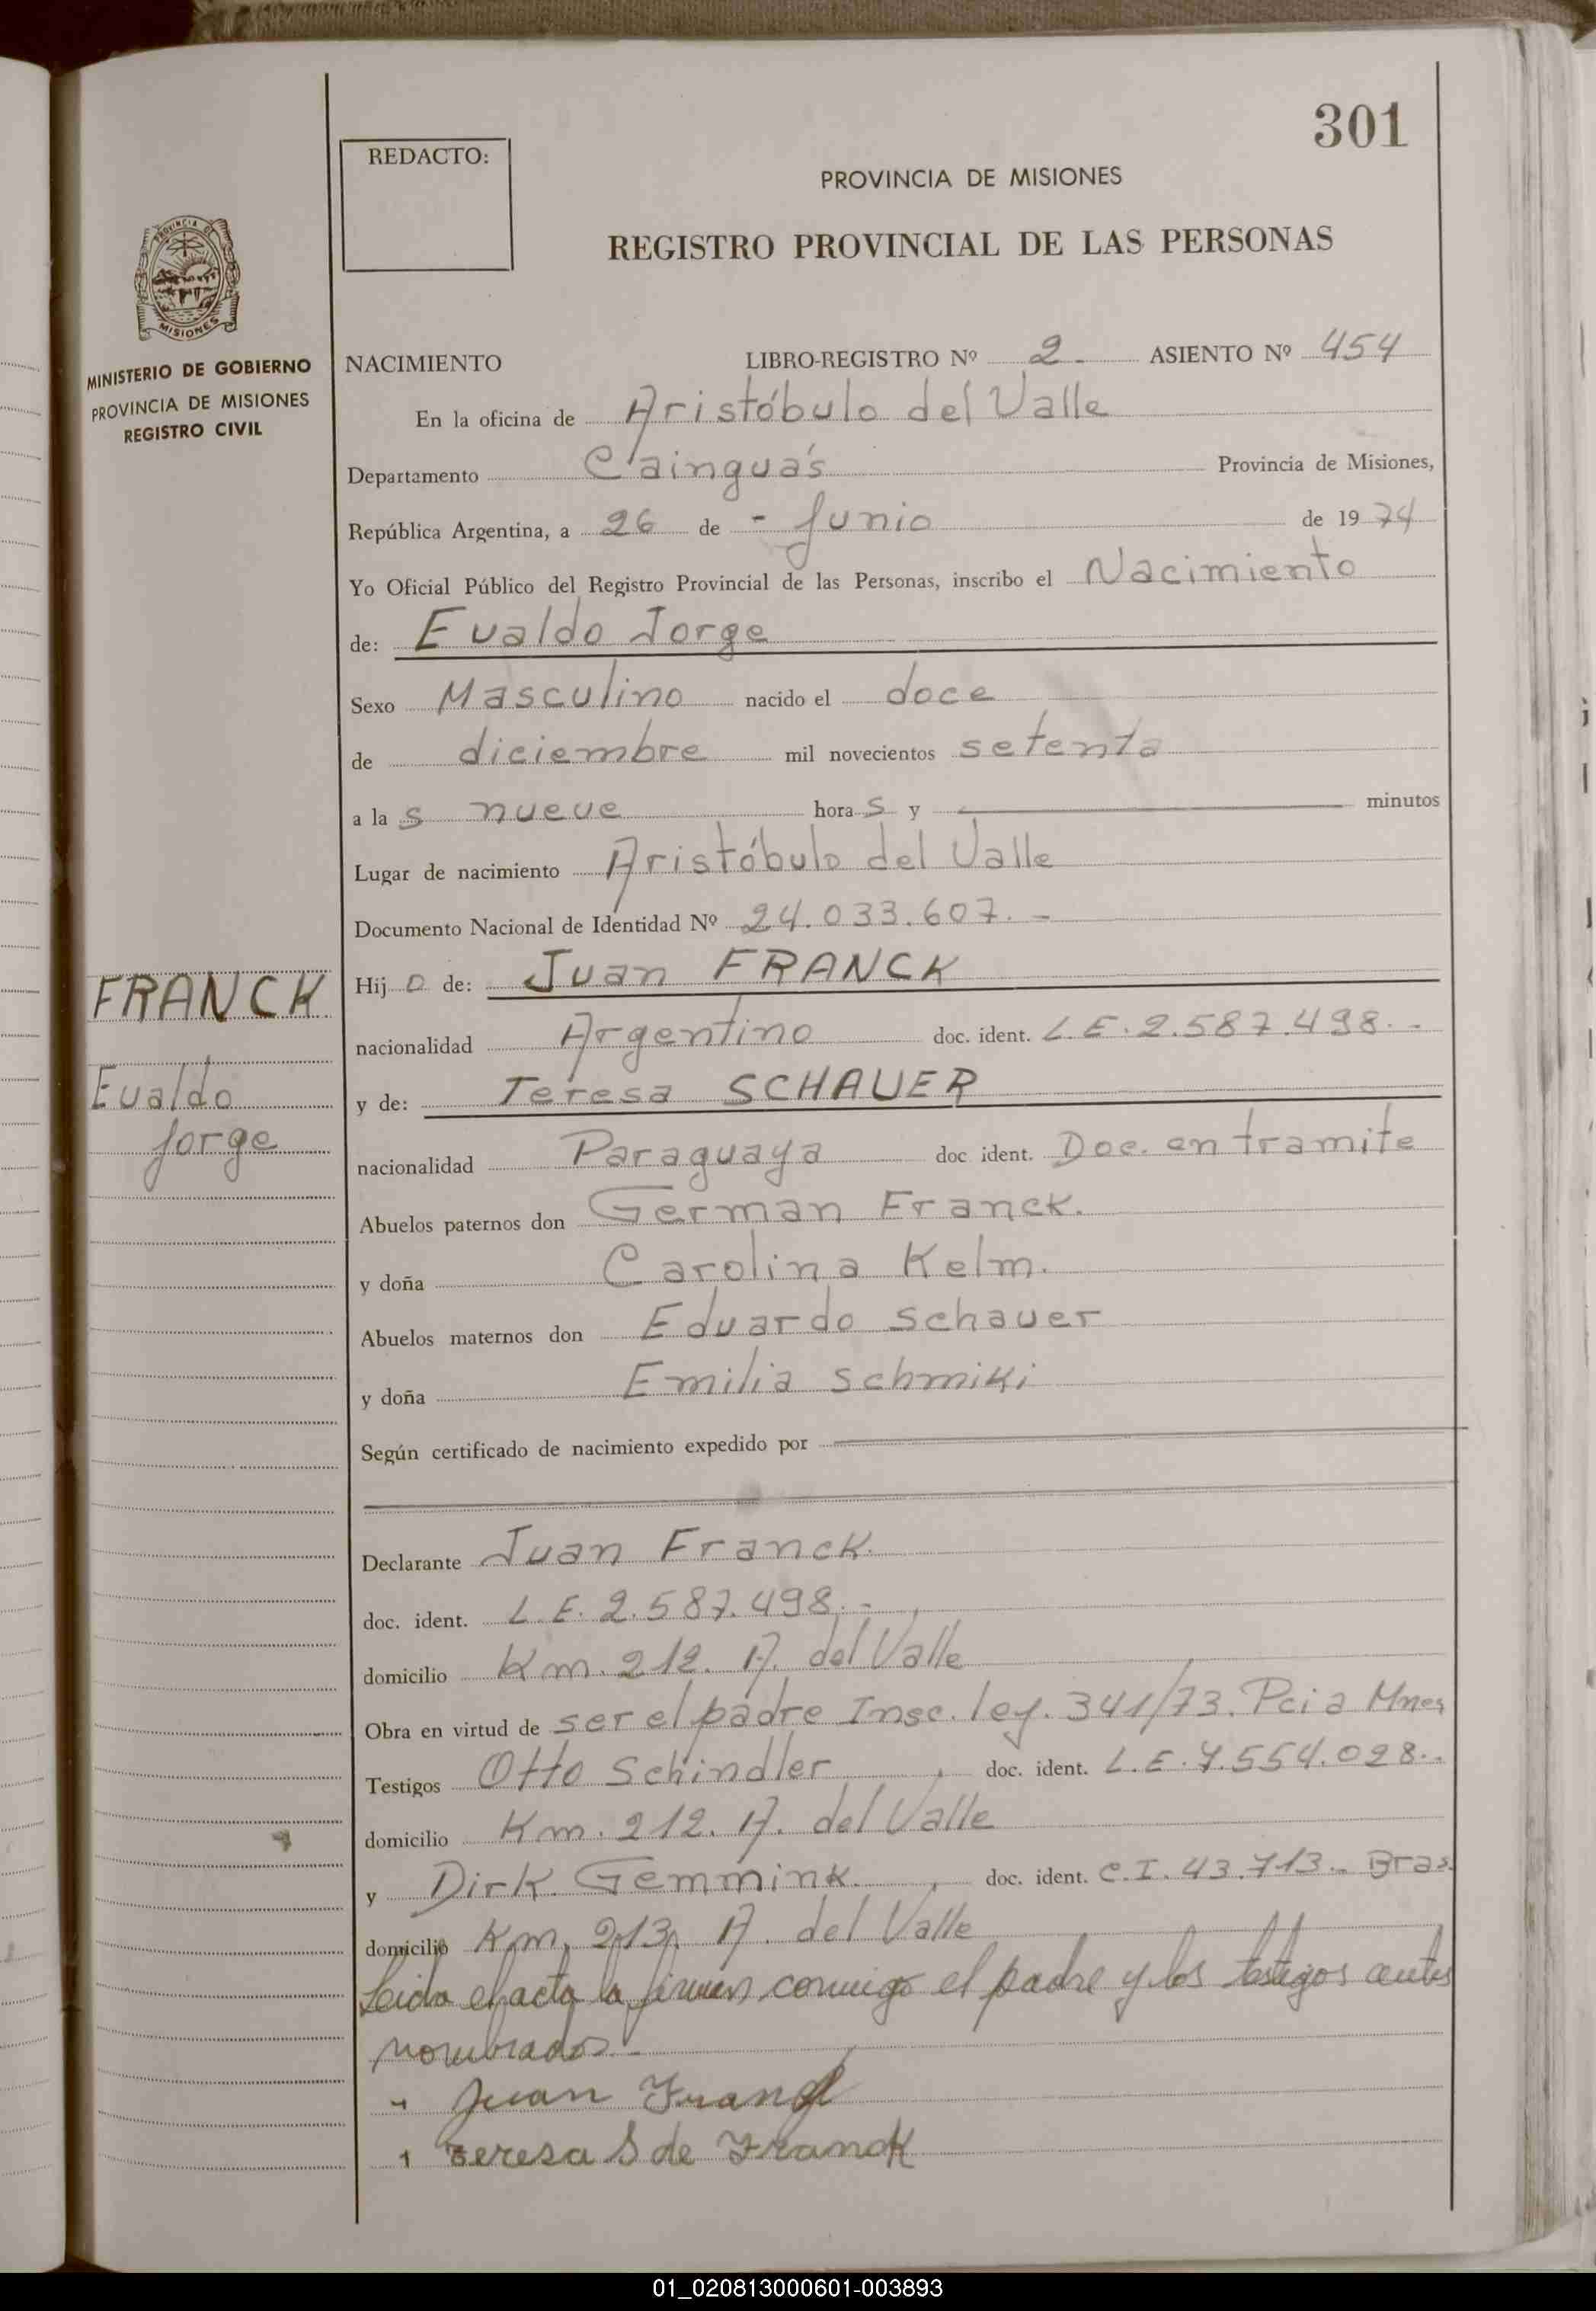 301
REDACTO:
PROVINCIA DE MISIONES
REGISTRO PROVINCIAL DE LAS PERSONAS
PROVINCIA DE
MISIONES
MINISTERIO DE GOBIERNO
PROVINCIA DE MISIONES
REGISTRO CIVIL
NACIMIENTO LIBRO-REGISTRO Nº 2 - ASIENTO Nº 454
En la oficina de Aristóbulo del Valle
Departamento Cainguás Provincia de Misiones,
República Argentina, a 26 de - Junio de 1974
Yo Oficial Público del Registro Provincial de las Personas, inscribo el Nacimiento
de: Evaldo Jorge
Sexo Masculino nacido el doce
de diciembre mil novecientos setenta
a las nueve horas y minutos
Lugar de nacimiento Aristóbulo del Valle
Documento Nacional de Identidad Nº 24.033.607.-
FRANCK
Evaldo
Jorge
Hijo de: Juan FRANCK
nacionalidad Argentino doc. ident. L.E. 2.587.498.-
y de: Teresa SCHAUER
nacionalidad Paraguaya doc ident. Doc. en tramite
Abuelos paternos don German Franck.
y doña Carolina Kelm.
Abuelos maternos don Eduardo Schauer
y doña Emilia Schmiki
Según certificado de nacimiento expedido por
Declarante Juan Franck.
doc. ident. L.E. 2.587.498.-
domicilio Km. 212. A. del Valle
Obra en virtud de ser el padre Insc. ley. 341/73. Pcia Mnes
Testigos Otto Schindler, doc. ident. L.E. 7.554.028..
domicilio Km. 212. A. del Valle
y Dirk Gemmink., doc. ident. C.I. 43.713.- Bras.
domicilio Km. 213. A. del Valle
Leida el acta la firman conmigo el padre y los testigos antes
nombrados.-
Juan Franck
Teresa S de Franck
01_020813000601-003893